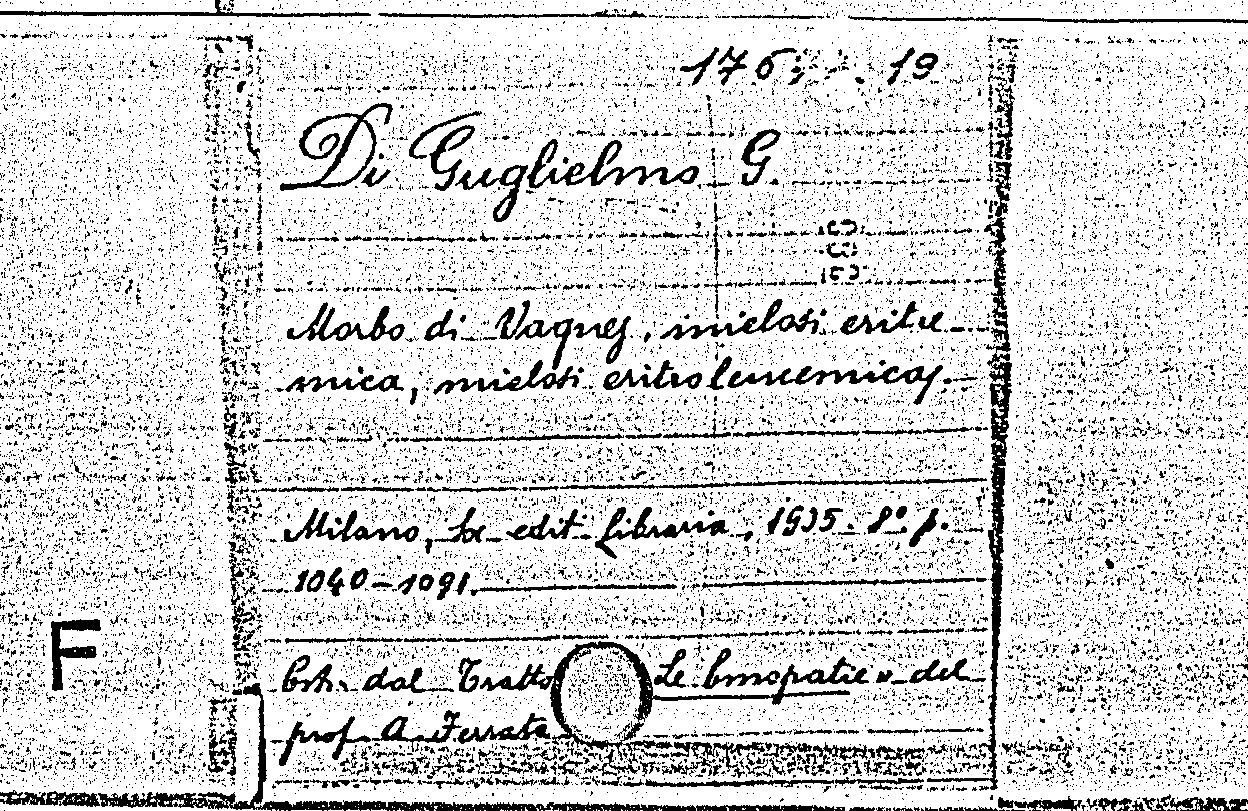 176 . 19
Di Guglielmo G.
Morbo di Vaquez, mielosi eritre-
mica, mielosi eritroleucemica.
Milano, Soc. edit. Libraria, 1935. 8°. p.
1040-1091.
Estr. dal Tratto Le Emopatie" del
prof. A. Ferrata
F